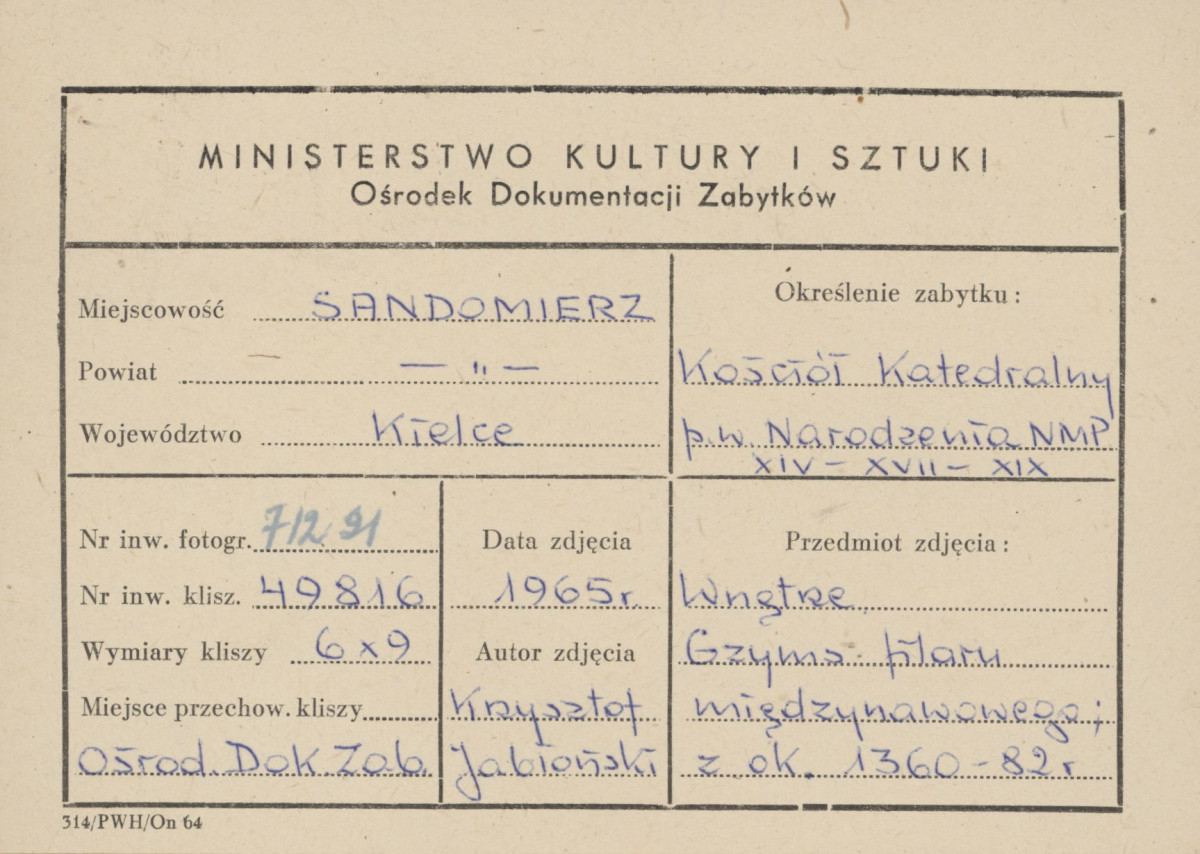 MINISTERSTWO KULTURY I SZTUKI
Ośrodek Dokumentacji Zabytków
Miejscowość SANDOMIERZ
Powiat — „ —
Województwo Kielce
Określenie zabytku:
Kościół Katedralny
p.w. Narodzenia NMP
XIV – XVII – XIX
Nr inw. fotogr. 71291
Nr inw. klisz. 49816
Wymiary kliszy 6x9
Miejsce przechow. kliszy
Ośrod. Dok. Zab.
Data zdjęcia
1965r.
Autor zdjęcia
Krzysztof
Jabłoński
Przedmiot zdjęcia:
Wnętrze
Gzyms filaru
międzynawowego;
z ok. 1360-82r
314/PWH/On 64